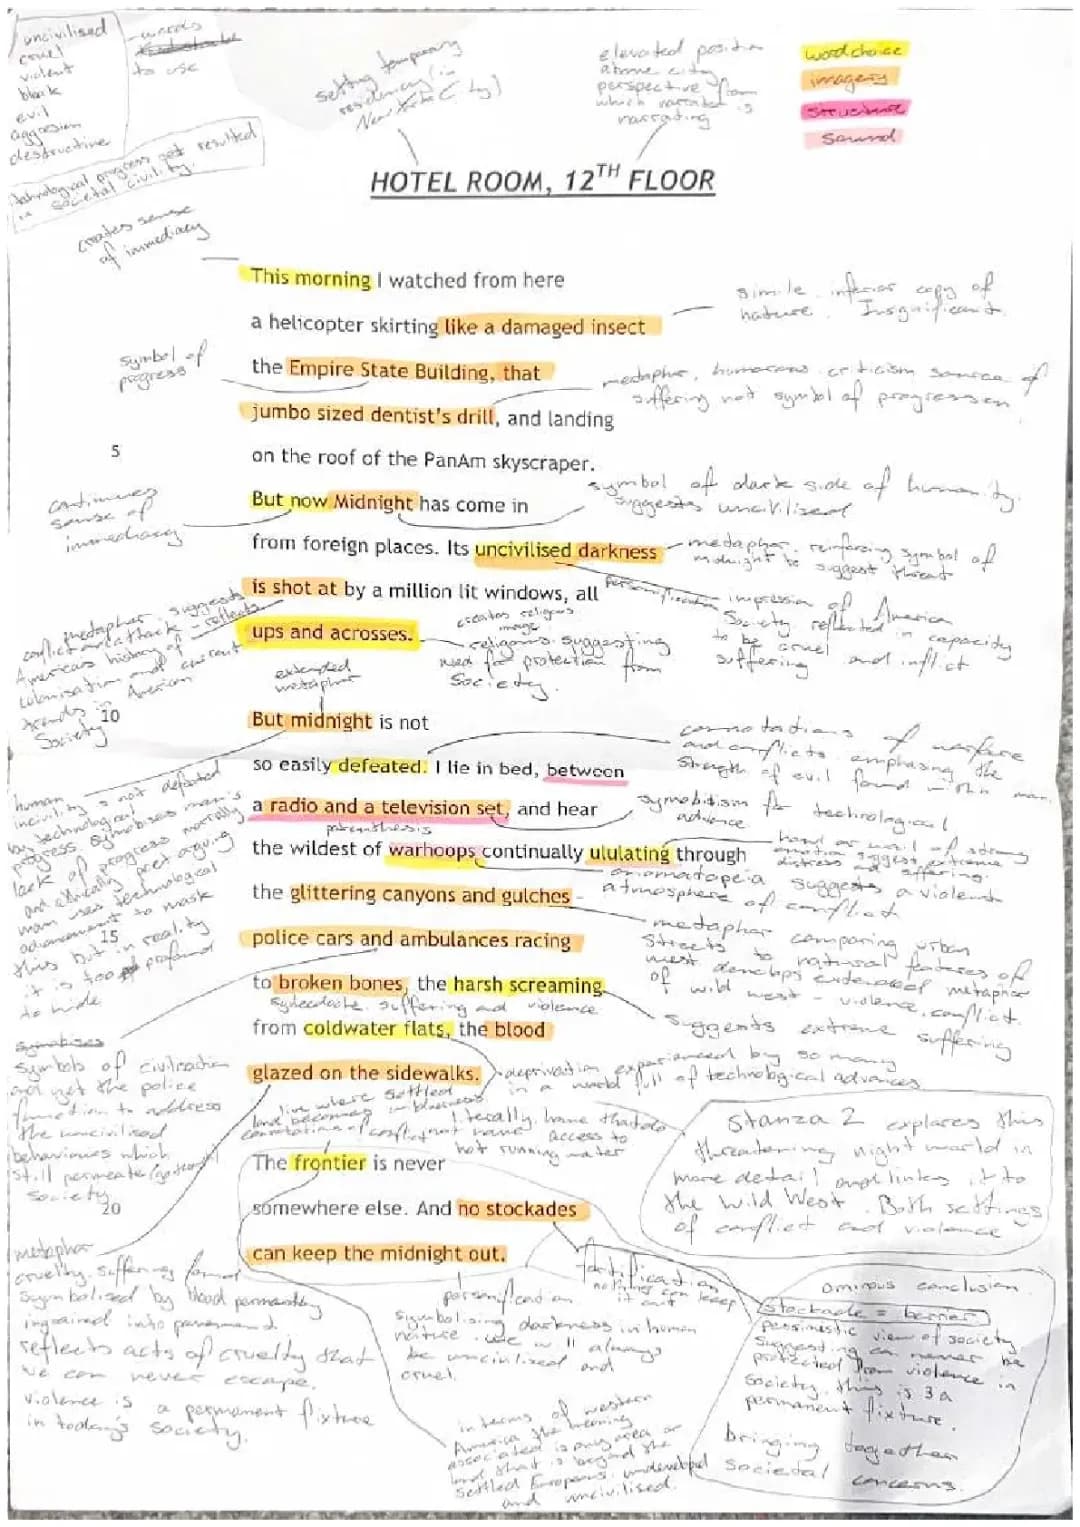 uncivilised
cruel
violent
bleak
evil
aggression
destructive
words
to use
technological progress not resulted
in societal civility.
setting temporary
residency (in
New York City)
elevated position
above city
perspective from
which narrator is
narrating
word choice
imagery
structure
sound
HOTEL ROOM, 12TH FLOOR
creates sense
of immediacy
This morning I watched from here
a helicopter skirting like a damaged insect
simile. inferior copy of
nature. Insignificant.
the Empire State Building, that
symbol of
progress
jumbo sized dentist's drill, and landing
metaphor, humorous criticism source of
suffering not symbol of progression
5
on the roof of the PanAm skyscraper.
But now Midnight has come in
continues
sense of
immediacy
symbol of dark side of humanity.
suggests uncivilised
from foreign places. Its uncivilised darkness
metaphor. reinforcing symbol of
midnight to suggest threat
is shot at by a million lit windows, all
personification
impression of America
Society reflected in capacity
to be cruel and inflict
suffering
metaphor suggests
conflict and attack - reflects
America's history of
colonisation and current
trends in American
Society
ups and acrosses.
creates religious
image
religious suggesting
need for protection from
Society.
extended
metaphor
10
But midnight is not
so easily defeated. I lie in bed, between
connotations of warfare
and conflicts emphasing the
strength of evil found within man.
a radio and a television set, and hear
symoblism for technological
advance
parenthesis
the wildest of warhoops continually ululating through
howl or wail of strong
emotion suggest extreme
distress and suffering.
onomatopeia suggests a violent
atmosphere of conflict
human
incivility is not defeated
by technological
progress. Symbolises man's
lack of progress morally
and ethically poet arguing
man uses technological
advancement to mask
this but in reality
it is too profound
to hide
the glittering canyons and gulches -
metaphor comparing urban
streets to natural features of
west develops extended metaphor
of wild west - violence, conflict.
15
police cars and ambulances racing
to broken bones, the harsh screaming
synecdoche. suffering and violence
suggests extreme suffering
from coldwater flats, the blood
deprivation experienced by so many
in a world full of technological advances
glazed on the sidewalks.
symbols of civilisation
and yet the police
function to address
the uncivilised
behaviours which
still permeate
Society
line where settled
land becomes wilderness
connotations of conflict
literally, home that do
not have access to
hot running water
Stanza 2 explores this
threatening night world in
more detail and links it to
the Wild West. Both settings
of conflict and violence
The frontier is never
20
somewhere else. And no stockades
can keep the midnight out.
metaphor
cruelty. suffering found
symbolised by blood permanently
ingrained into pavement.
reflects acts of cruelty that
we can never escape.
violence is a permanent fixture
in today's society.
personification
symbolising darkness in human
nature. we will always
be uncivilised and
cruel.
fortification
nothing can keep
it out
ominous conclusion
stockade = barrier
pessimestic view of society
suggesting can never be
protected from violence in
society. this is a
permanent fixture.
bringing together
societal concerns.
in terms of western
America the meaning
associated is any area or
land that is beyond the
settled Europeans. undeveloped
and uncivilised.